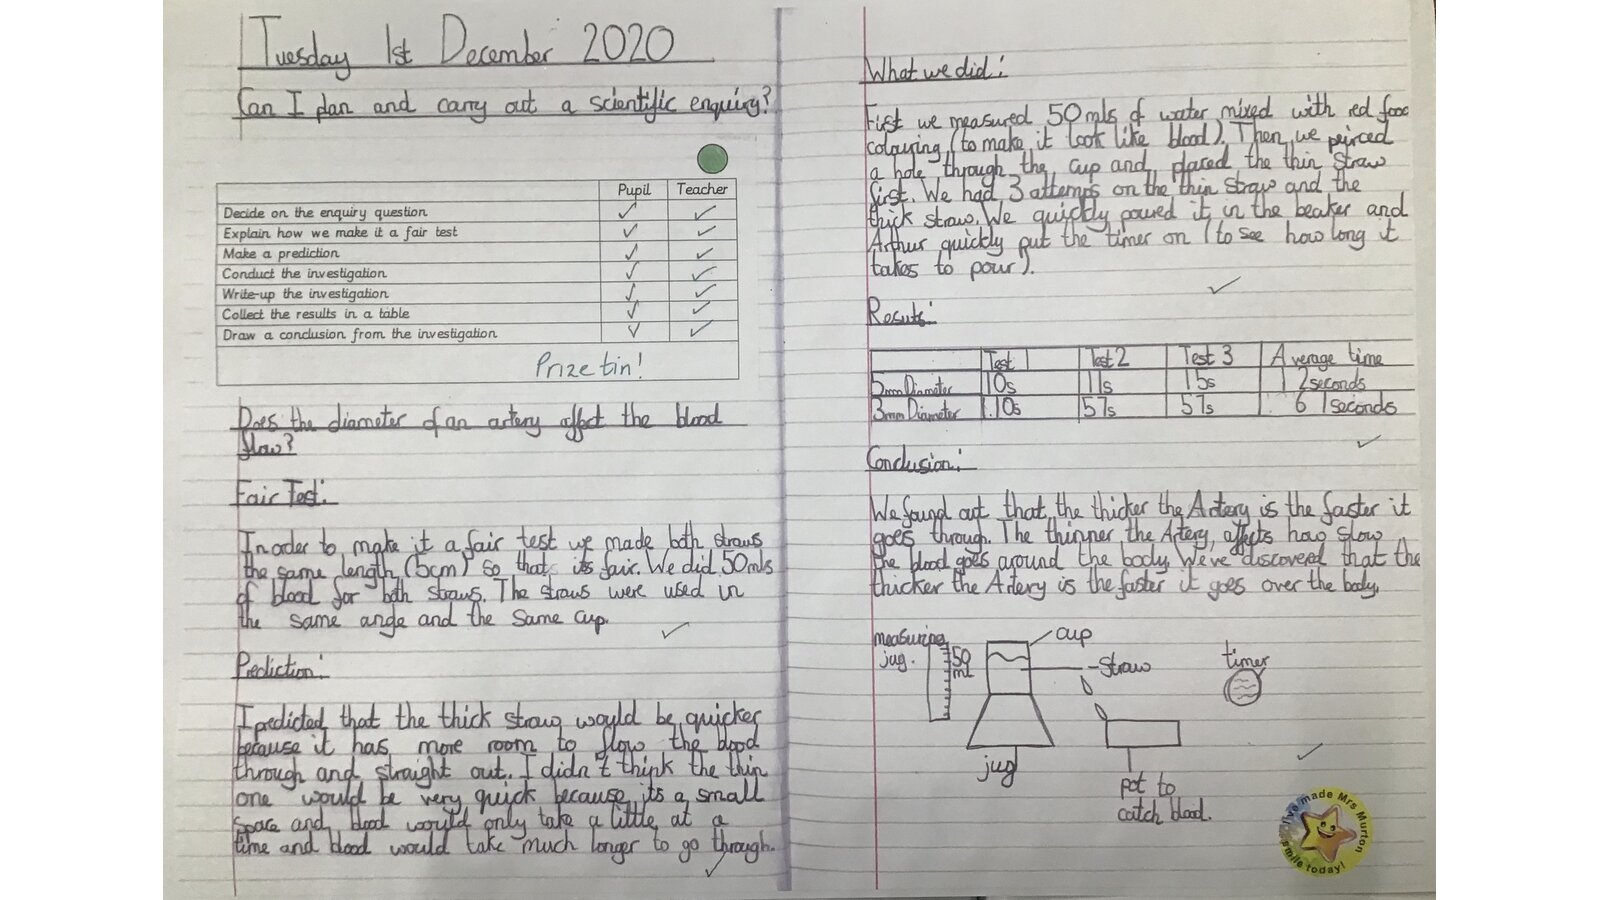 Tuesday 1st December 2020
Can I plan and carry out a scientific enquiry?
Pupil Teacher
Decide on the enquiry question ✓ ✓
Explain how we make it a fair test ✓ ✓
Make a prediction ✓ ✓
Conduct the investigation ✓ ✓
Write-up the investigation ✓ ✓
Collect the results in a table ✓ ✓
Draw a conclusion from the investigation ✓ ✓
Prize tin!
Does the diameter of an artery affect the blood
flow?
Fair Test:
In order to make it a fair test we made both straws
the same length (5cm) so that its fair. We did 50mls
of blood for both straws. The straws were used in
the same angle and the same cup.
Prediction:
I predicted that the thick straw would be quicker
because it has more room to flow the blood
through and straight out. I didn't think the thin
one would be very quick because its a small
space and blood would only take a little at a
time and blood would take much longer to go through.
What we did:
First we measured 50mls of water mixed with red food
colouring (to make it look like blood). Then we peirced
a hole through the cup and placed the thin straw
first. We had 3 attemps on the thin straw and the
thick straw. We quickly poured it in the beaker and
Arthur quickly put the timer on (to see how long it
takes to pour).
Results:
Test 1 Test 2 Test 3 Average time
5mm Diameter 10s 11s 15s 12seconds
3mm Diameter 1.10s 57s 57s 61seconds
Conclusion:
We found out that the thicker the Artery is the faster it
goes through. The thinner the Artery, affects how slow
the blood goes around the body. We've discovered that the
thicker the Artery is the faster it goes over the body.
measuring
jug.
50
ml
cup
straw
timer
jug
pot to
catch blood.
I've made Mrs Murton
smile today!